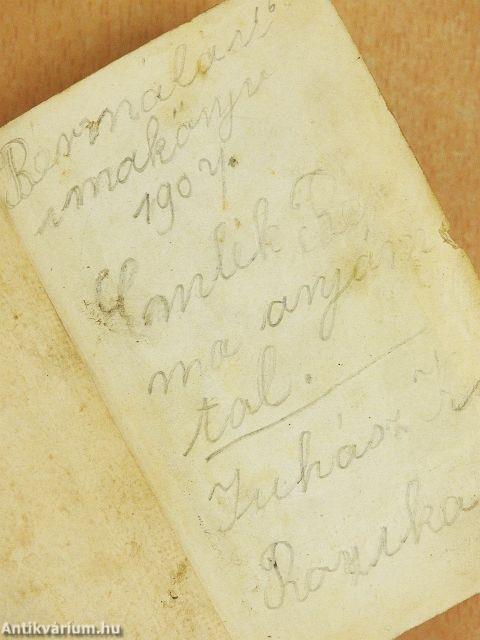 Bérmálási
imakönyv
1904.
Emlék
ma anyám
tal.
Juhász
Rozika
Antikvárium.hu